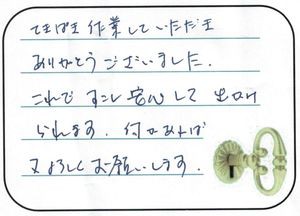 てきぱき作業していただき
ありがとうございました.
これで 少し安心して 出かけ
られます. 何かあれば
又よろしくお願いします.